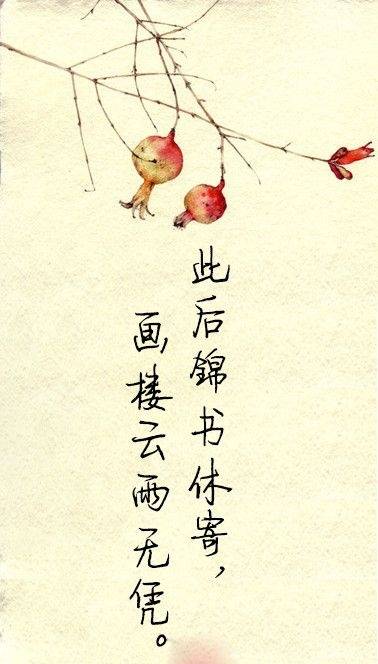 此后锦书休寄，
画楼云雨无凭。